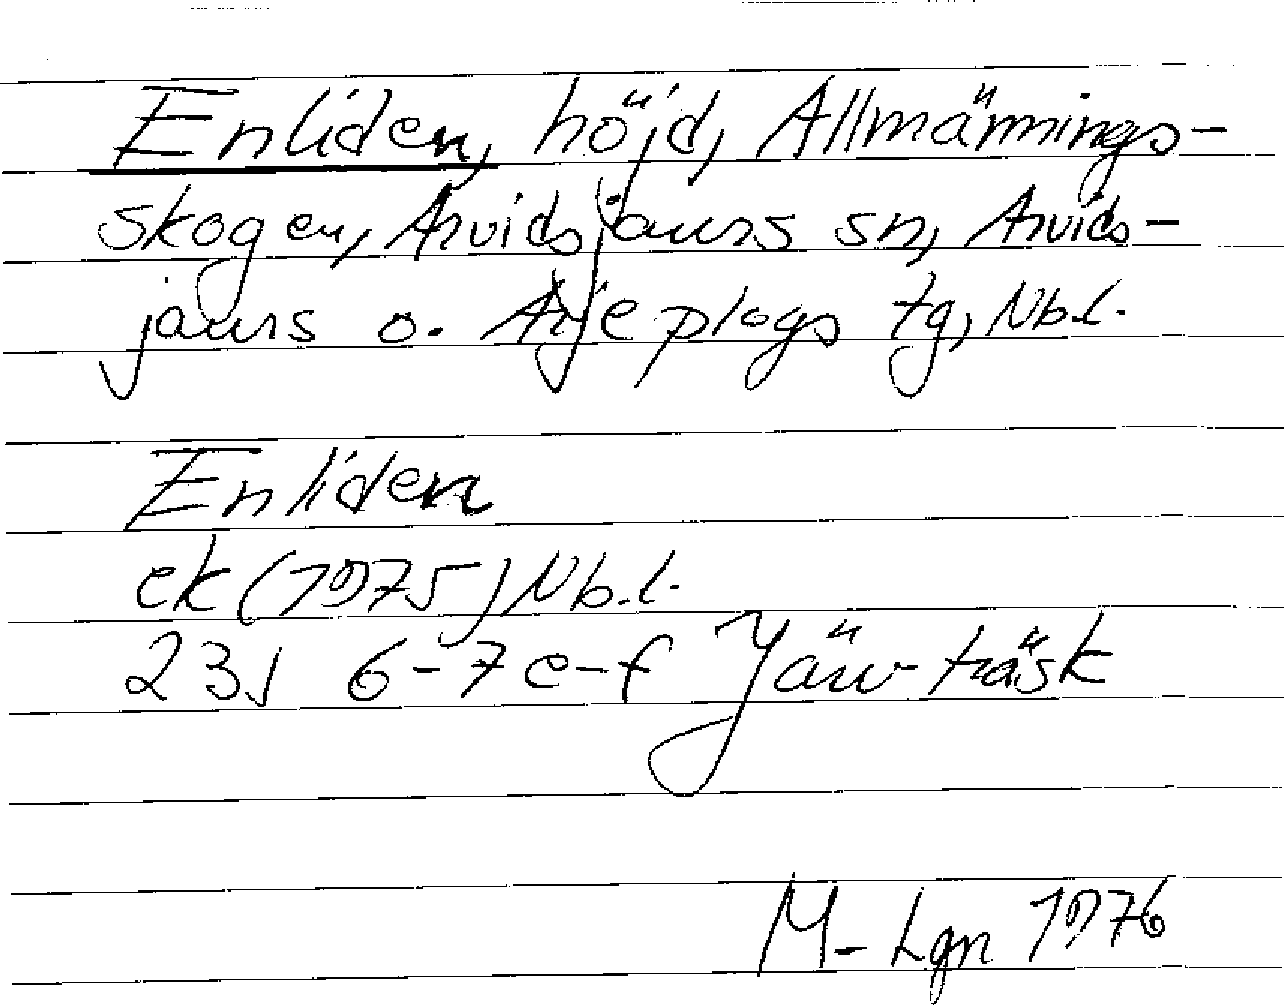 Enliden, höjd, Allmännings-
skogen, Arvidsjaurs sn, Arvids-
jaurs o. Arjeplogs tg, Nb.l.
Enliden
ek (1975) Nb.l.
23J 6-7 e-f Järvträsk
M-Lgn 1976